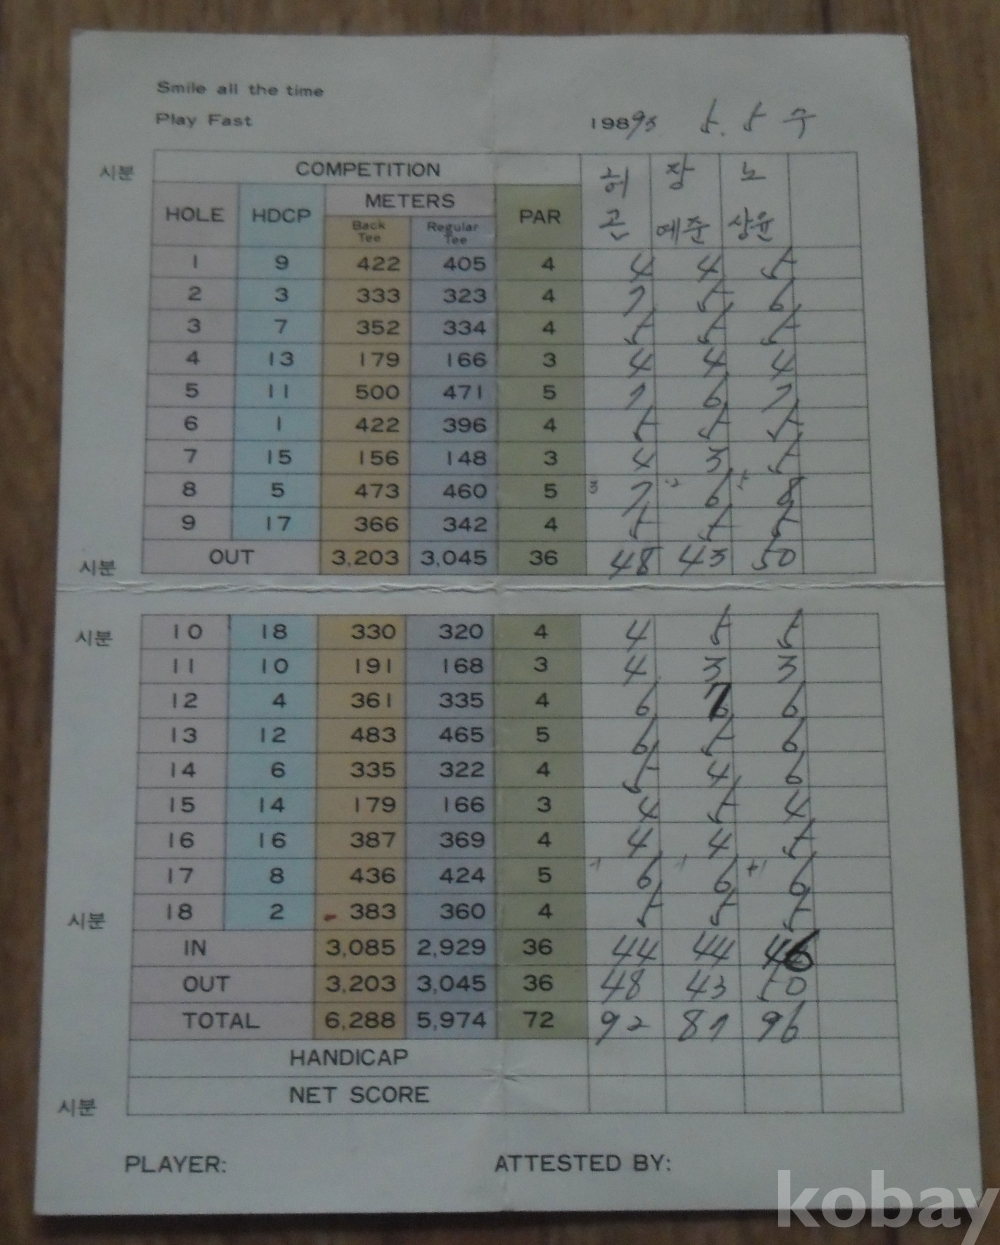 Smile all the time
Play Fast
1989
5. 5 수
시분
COMPETITION
허 장 노
HOLE HDCP METERS PAR
Back Tee Regular Tee
곤 예준 상윤
1 9 422 405 4 4 4 5
2 3 333 323 4 7 5 6
3 7 352 334 4 5 5 5
4 13 179 166 3 4 4 4
5 11 500 471 5 7 6 7
6 1 422 396 4 5 5 5
7 15 156 148 3 4 3 5
8 5 473 460 5 3 7 2 6 5 8
9 17 366 342 4 5 5 5
시분 OUT 3,203 3,045 36 48 43 50
시분 10 18 330 320 4 4 5 5
11 10 191 168 3 4 3 3
12 4 361 335 4 6 7 6
13 12 483 465 5 6 5 6
14 6 335 322 4 5 4 6
15 14 179 166 3 4 5 4
16 16 387 369 4 4 4 5
17 8 436 424 5 -1 6 -1 6 +1 6
시분 18 2 383 360 4 5 5 5
IN 3,085 2,929 36 44 44 46
OUT 3,203 3,045 36 48 43 50
TOTAL 6,288 5,974 72 92 87 96
HANDICAP
시분 NET SCORE
PLAYER: ATTESTED BY:
kobay